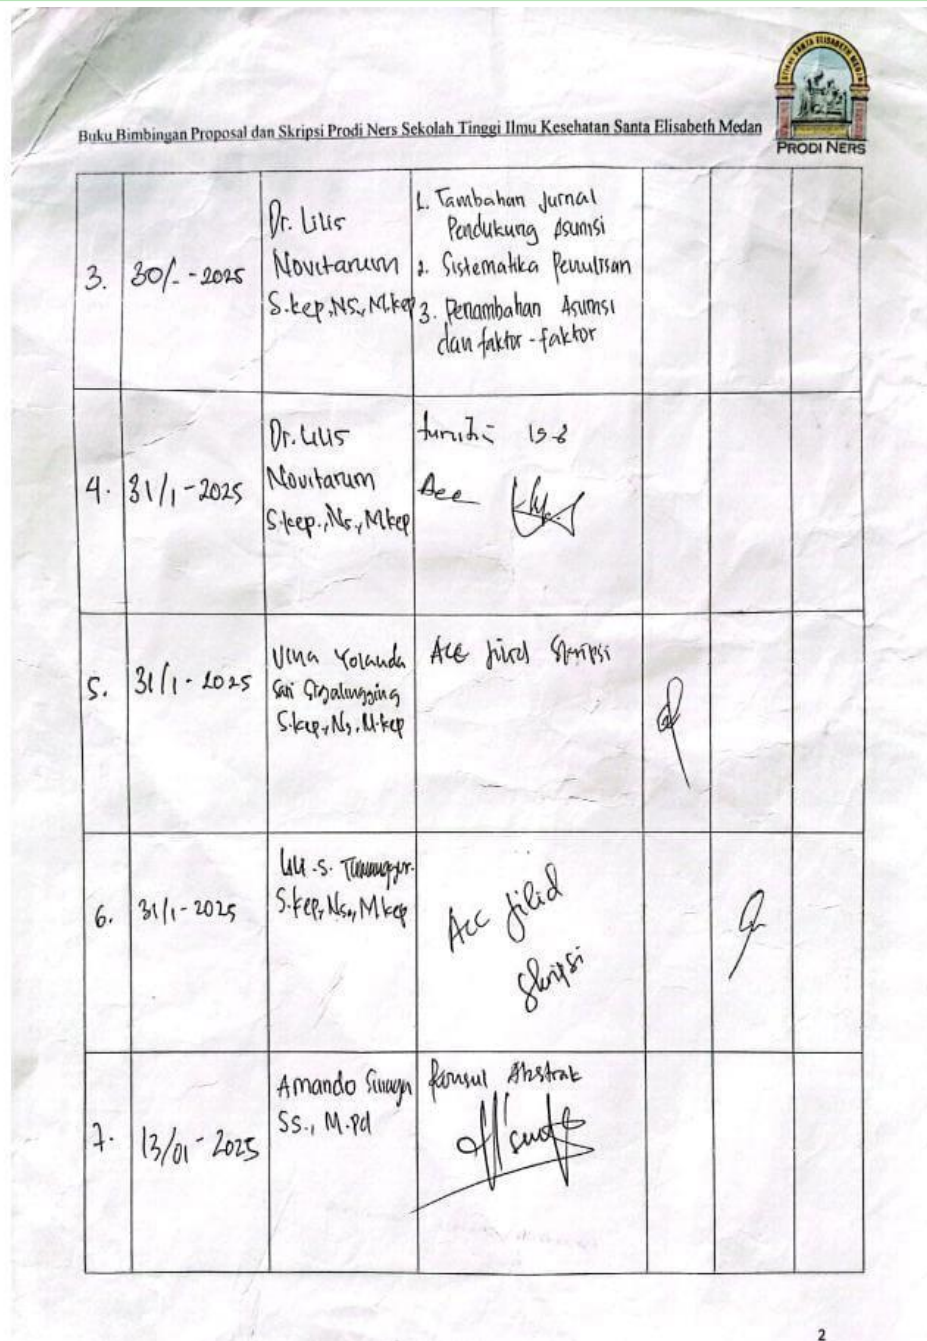 STIKes SANTA ELISABETH MEDAN
PRODI NERS
Buku Bimbingan Proposal dan Skripsi Prodi Ners Sekolah Tinggi Ilmu Kesehatan Santa Elisabeth Medan
3.
30/ - 2025
Dr. Lilis
Novitarum
S.kep,NS,M.kep
1. Tambahan Jurnal
Pendukung Asumsi
2. Sistematika Penulisan
3. Penambahan Asumsi
dan faktor-faktor
4.
31/1-2025
Dr. Lilis
Novitarum
S.kep.,Ns.,Mkep
Acc
5.
31/1-2025
Vina Yolanda
Sari Sigalingging
S.kep,Ns,M.kep
Acc jilid Skripsi
6.
31/1-2025
S.kep,Ns.,Mkep
Acc jilid
Skripsi
7.
13/01-2025
Amando Sinaga
Ss., M.Pd
Konsul Abstrak
2